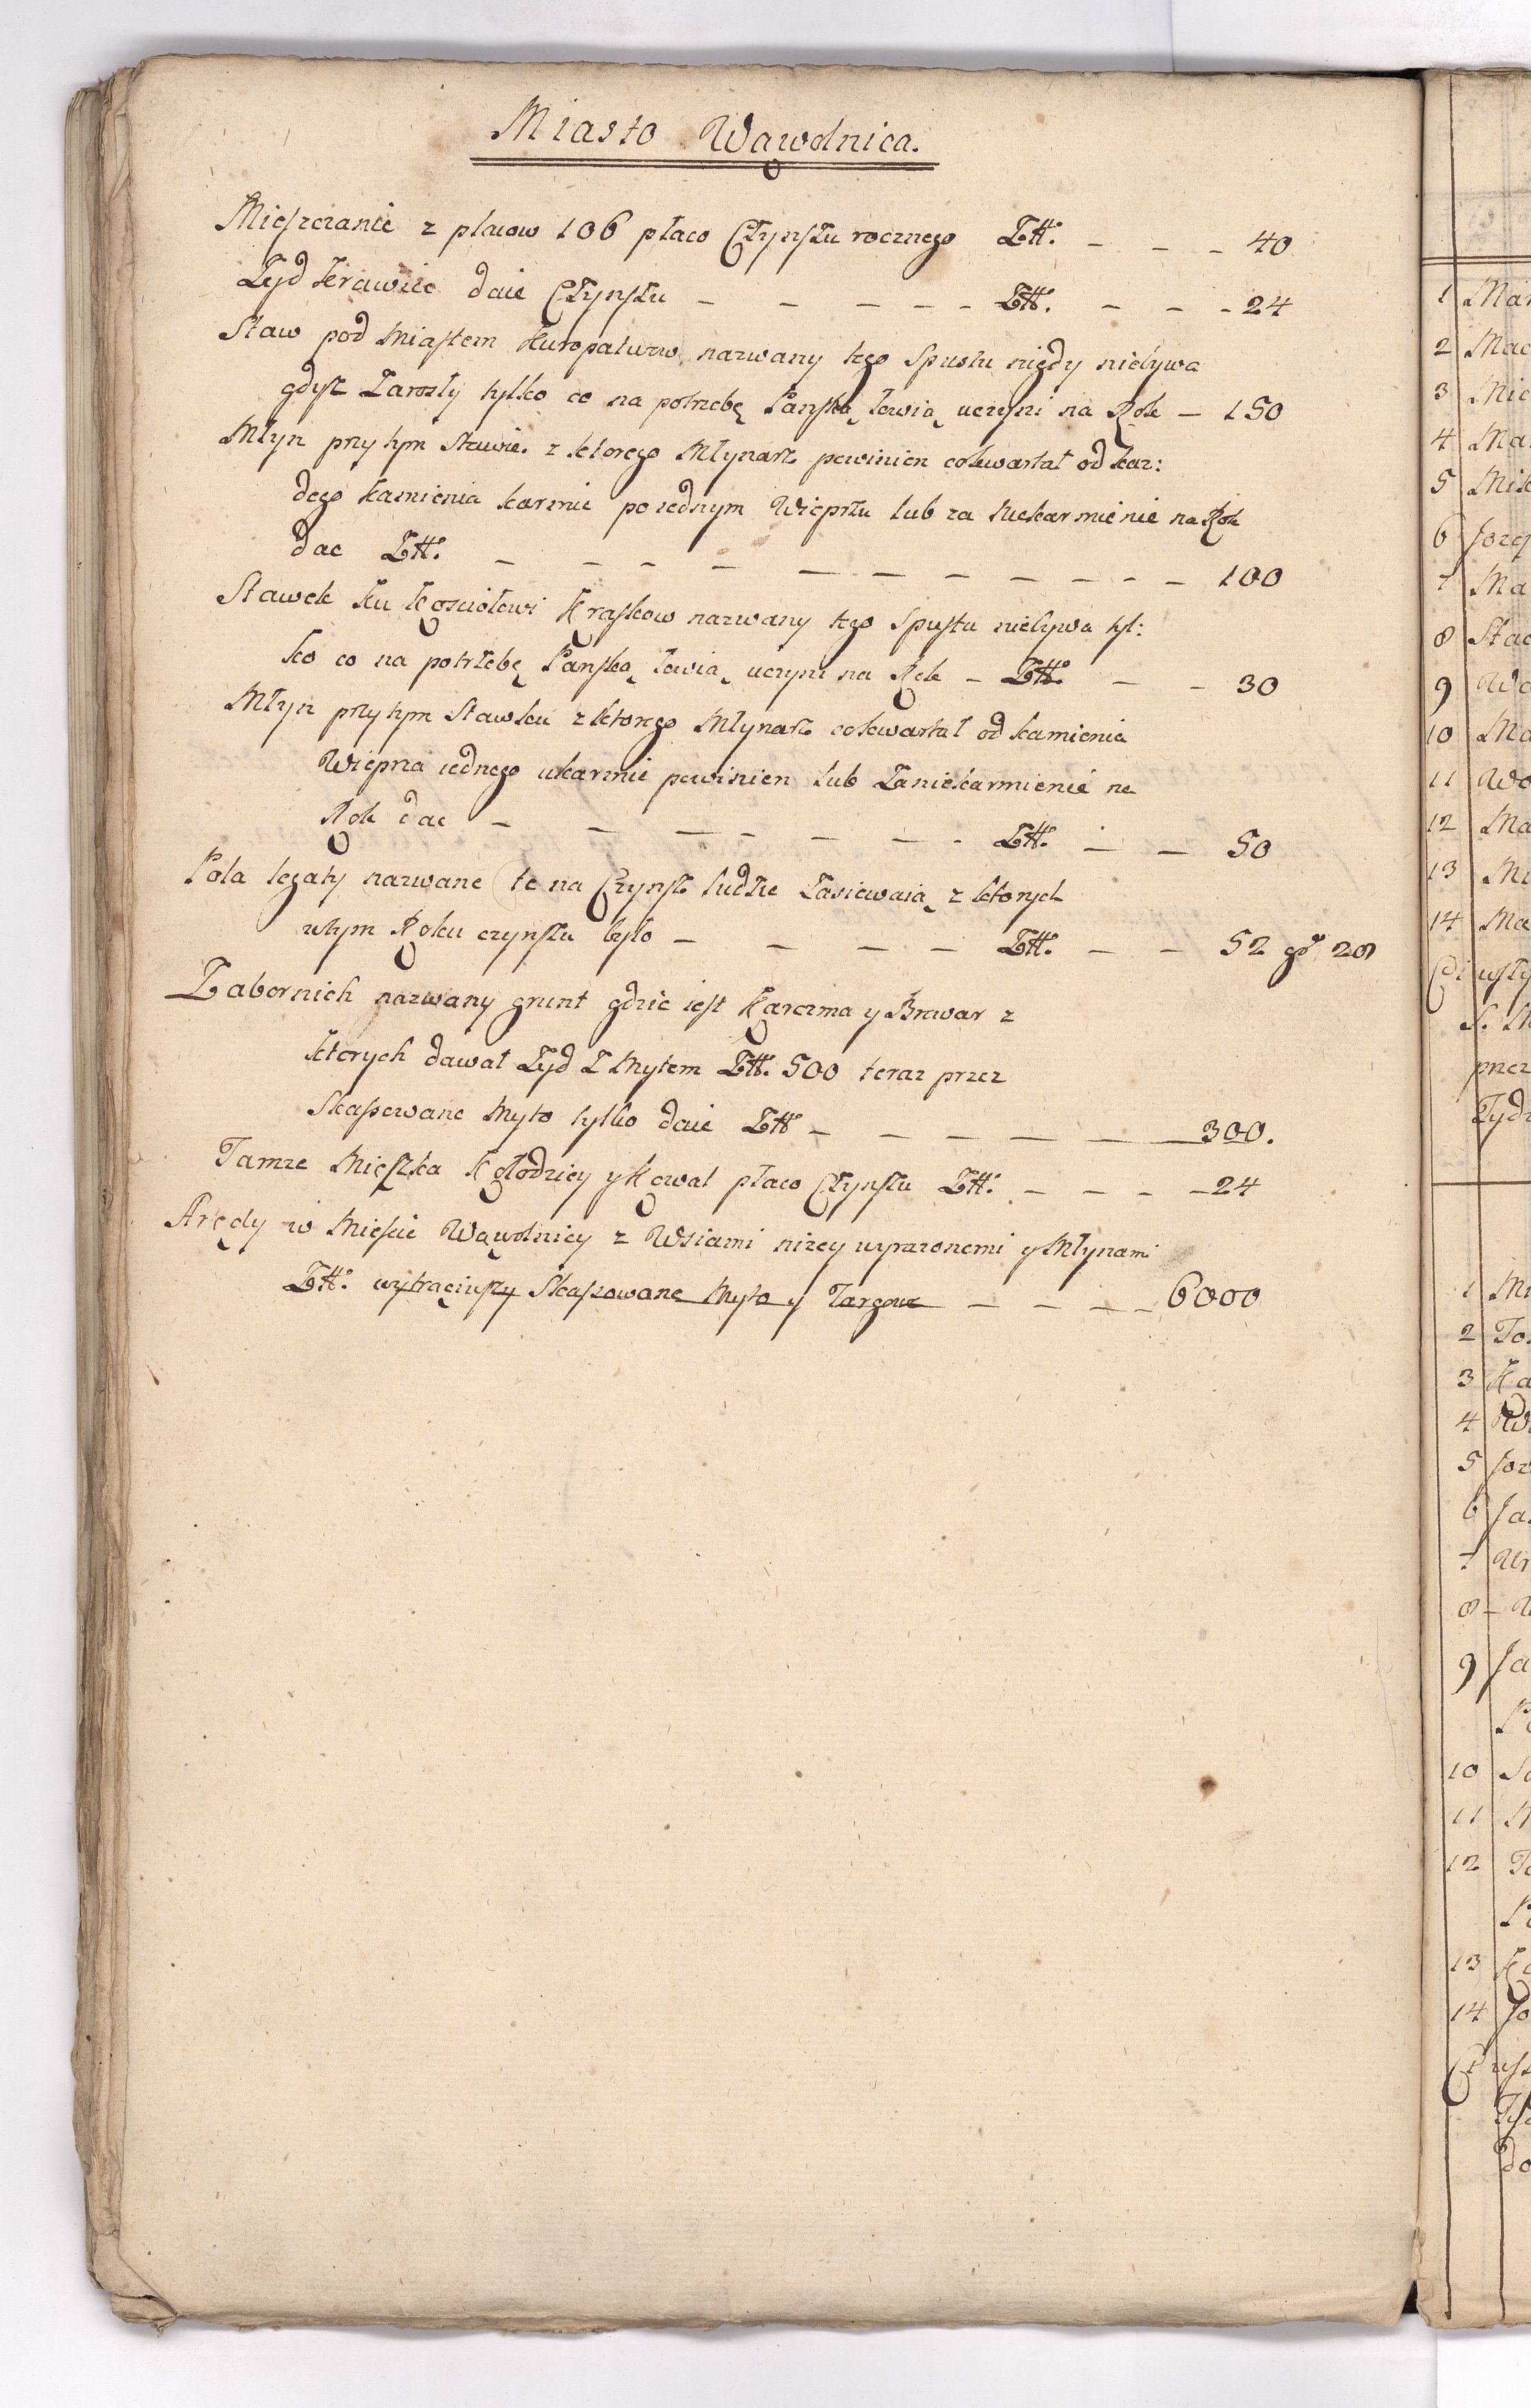 Miasto Wąwolnica.
Mieszczanie z placow 106 płaco Czynszu rocznego Zł: – – – 40
Zyd Krawiec daie Czynszu – – – – – Zł. – – – 24
Staw pod Miastem Kuropatwa nazwany tego Spustu nigdy niebywa
gdysz Zarosły tylko co na potrzebę Panską łowią uczyni na Rok – 150
Młyn przy tym Stawie. z ktorego Młynarz powinien cokwartał od kaz:
dego kamienia karmic po iednym Wieprzu lub za Niekarmienie na Rok
dac Zł: – – – – – – – – – – – – 100
Stawek ku Kosciołowi Kraskow nazwany tego Spustu niebywa tyl:
ko co na potrzebę Panską łowią uczyni na Rok – Zł: – – 30
Młyn przy tym Stawku z ktorego Młynarz cokwartał od kamienia
Wieprza iednego ukarmic powinien lub Zaniekarmienie na
Rok dac – – – – – – – Zł: – – 50
Pola legaty nazwane te na Czynsz ludzie Zasiewaią z ktorych
wtym Roku czynszu było – – – – Zł: – – 52 gr 20
Zabornich nazwany grunt gdzie iest Karczma y Browar z
ktorych dawał Zyd Z Mytem Zł: 500 teraz przez
Skassowane Myto tylko daie Zł – – – – – 300.
Tamze Mięszka Kołodziey y Kowal płaco Czynszu Zł: – – – – 24
Arędy w Miescie Wąwolnicy z Wsiami nizey wyrazonemi y Młynami
Zł: wytrąciwszy Skassowane Myto y Targowe – – – – 6000
1 Mar
2 Mac
3 Mic
4 Ma
5 Mik
6 Joze
7 Ma
8 Stac
9 Wo
10 Ma
11 Wo
12 Ma
13 Mi
14 Ma
przez
Zyd
1 Mi
2 To
3 Ka
4
5 Joz
6 Ja
7 Ur
8
9 Ja
10
11
12 To
13 Ko
14 Jo
do